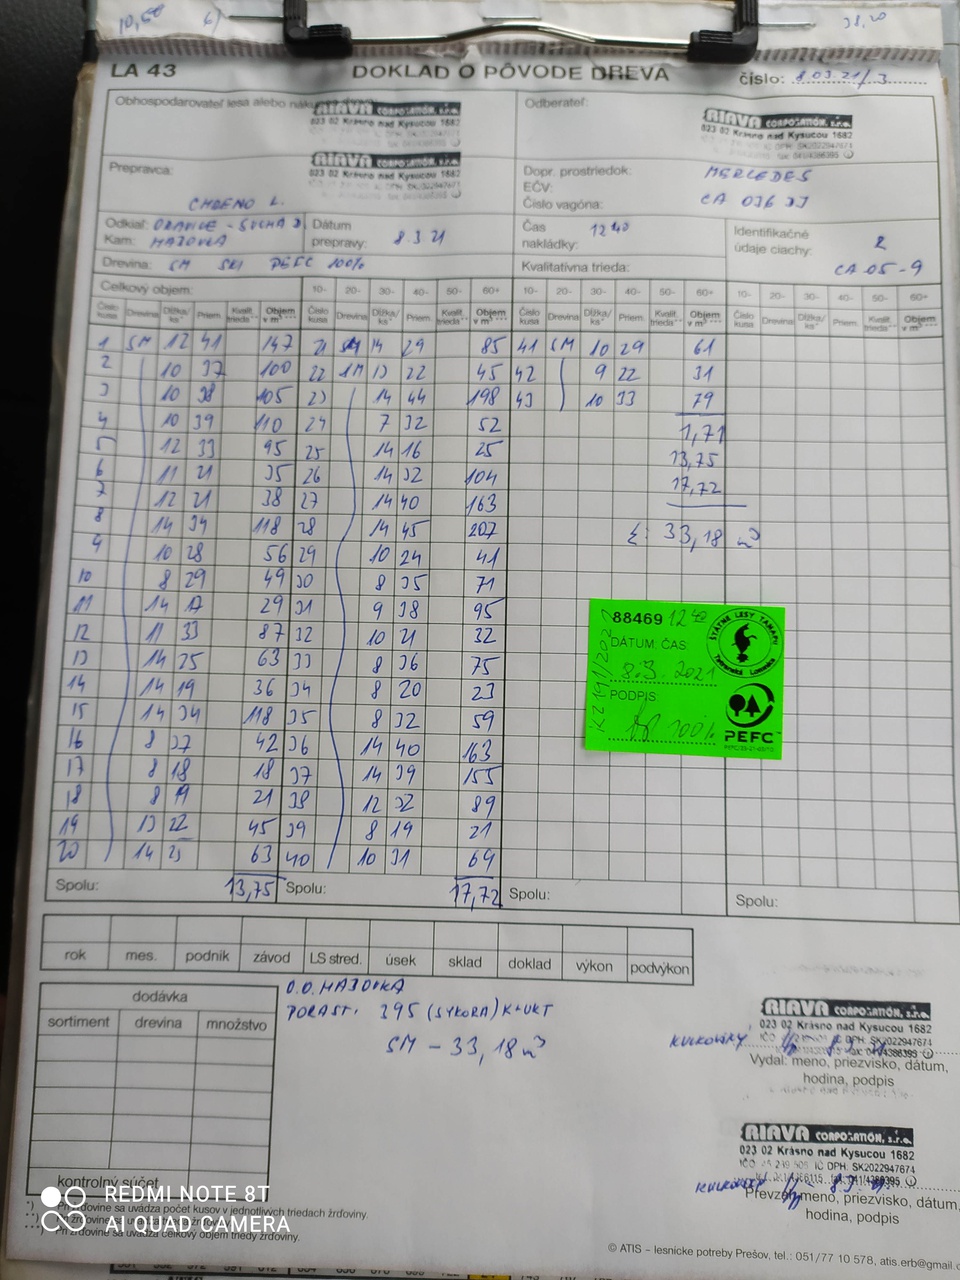 10,50 6)
38,20
LA 43 DOKLAD O PÔVODE DREVA číslo: 8 03 21/3
Obhospodarovateľ lesa alebo
RIAVA CORPORATION, s.r.o.
023 02 Krásno nad Kysucou 1682
Odberateľ:
RIAVA CORPORATION, s.r.o.
023 02 Krásno nad Kysucou 1682
Prepravca:
RIAVA CORPORATION, s.r.o.
023 02 Krásno nad Kysucou 1682
Dopr. prostriedok: MERCEDES
EČV: CA 036 DJ
Číslo vagóna:
Odkiaľ: ORAVICE - SUCHÁ D.
Kam: HÁJOVKA
Dátum
prepravy: 8.3 21
Čas
nakládky: 12 40
Identifikačné
údaje ciachy: 2
CA 05-9
Drevina: SM SKI PEFC 100%
Kvalitatívna trieda:
Celkový objem: 10- 20- 30- 40- 50- 60+ 10- 20- 30- 40- 50- 60+ 10- 20- 30- 40- 50- 60+
Číslo kusa Drevina Dĺžka/ks* Priem. Kvalit. trieda** Objem v m³ Číslo kusa Drevina Dĺžka/ks* Priem. Kvalit. trieda** Objem v m³ Číslo kusa Drevina Dĺžka/ks* Priem. Kvalit. trieda** Objem v m³ Číslo kusa Drevina Dĺžka/ks* Priem. Kvalit. trieda** Objem v m³
1 SM 12 41 147 21 SM 14 29 85 41 SM 10 29 61
2 10 37 100 22 13 22 45 42 9 22 31
3 10 38 105 23 14 44 198 43 10 33 79
4 10 39 110 24 7 32 52 1,71
5 12 33 95 25 14 16 25 13,75
6 11 21 35 26 14 32 104 17,72
7 12 21 38 27 14 40 163
8 14 34 118 28 14 45 207 Σ: 33,18 m³
9 10 28 56 29 10 24 41
10 8 29 49 30 8 35 71
11 14 17 29 31 9 38 95
12 11 33 87 32 10 21 32
13 14 25 63 33 8 36 75
14 14 19 36 34 8 20 23
15 14 34 118 35 8 32 59
16 8 27 42 36 14 40 163
17 8 18 18 37 14 39 155
18 8 19 21 38 12 32 89
19 13 22 45 39 8 19 21
20 14 25 63 40 10 31 69
Spolu: 13,75 Spolu: 17,72 Spolu: Spolu:
88469 12 40
DÁTUM ČAS:
8.3.2021
PODPIS
100%
ŠTÁTNE LESY TANAPU
Tatranská Lomnica
PEFC
rok mes. podnik závod LS stred. úsek sklad doklad výkon podvýkon
dodávka
sortiment drevina množstvo
kontrolný súčet
O.O. HÁJOVKA
PORAST. 395 (SÝKORA)
SM - 33,18 m³
RIAVA CORPORATION, s.r.o.
023 02 Krásno nad Kysucou 1682
Vydal: meno, priezvisko, dátum,
hodina, podpis
RIAVA CORPORATION, s.r.o.
023 02 Krásno nad Kysucou 1682
IČ DPH: SK2022947674
Prevzal: meno, priezvisko, dátum,
hodina, podpis
Pri žrďovine sa uvádza počet kusov v jednotlivých triedach žrďoviny.
Pri žrďovine sa uvádza celkový objem triedy žrďoviny.
© ATIS – lesnícke potreby Prešov, tel.: 051/77 10 578, atis.erb@gmail.c
REDMI NOTE 8T
AI QUAD CAMERA